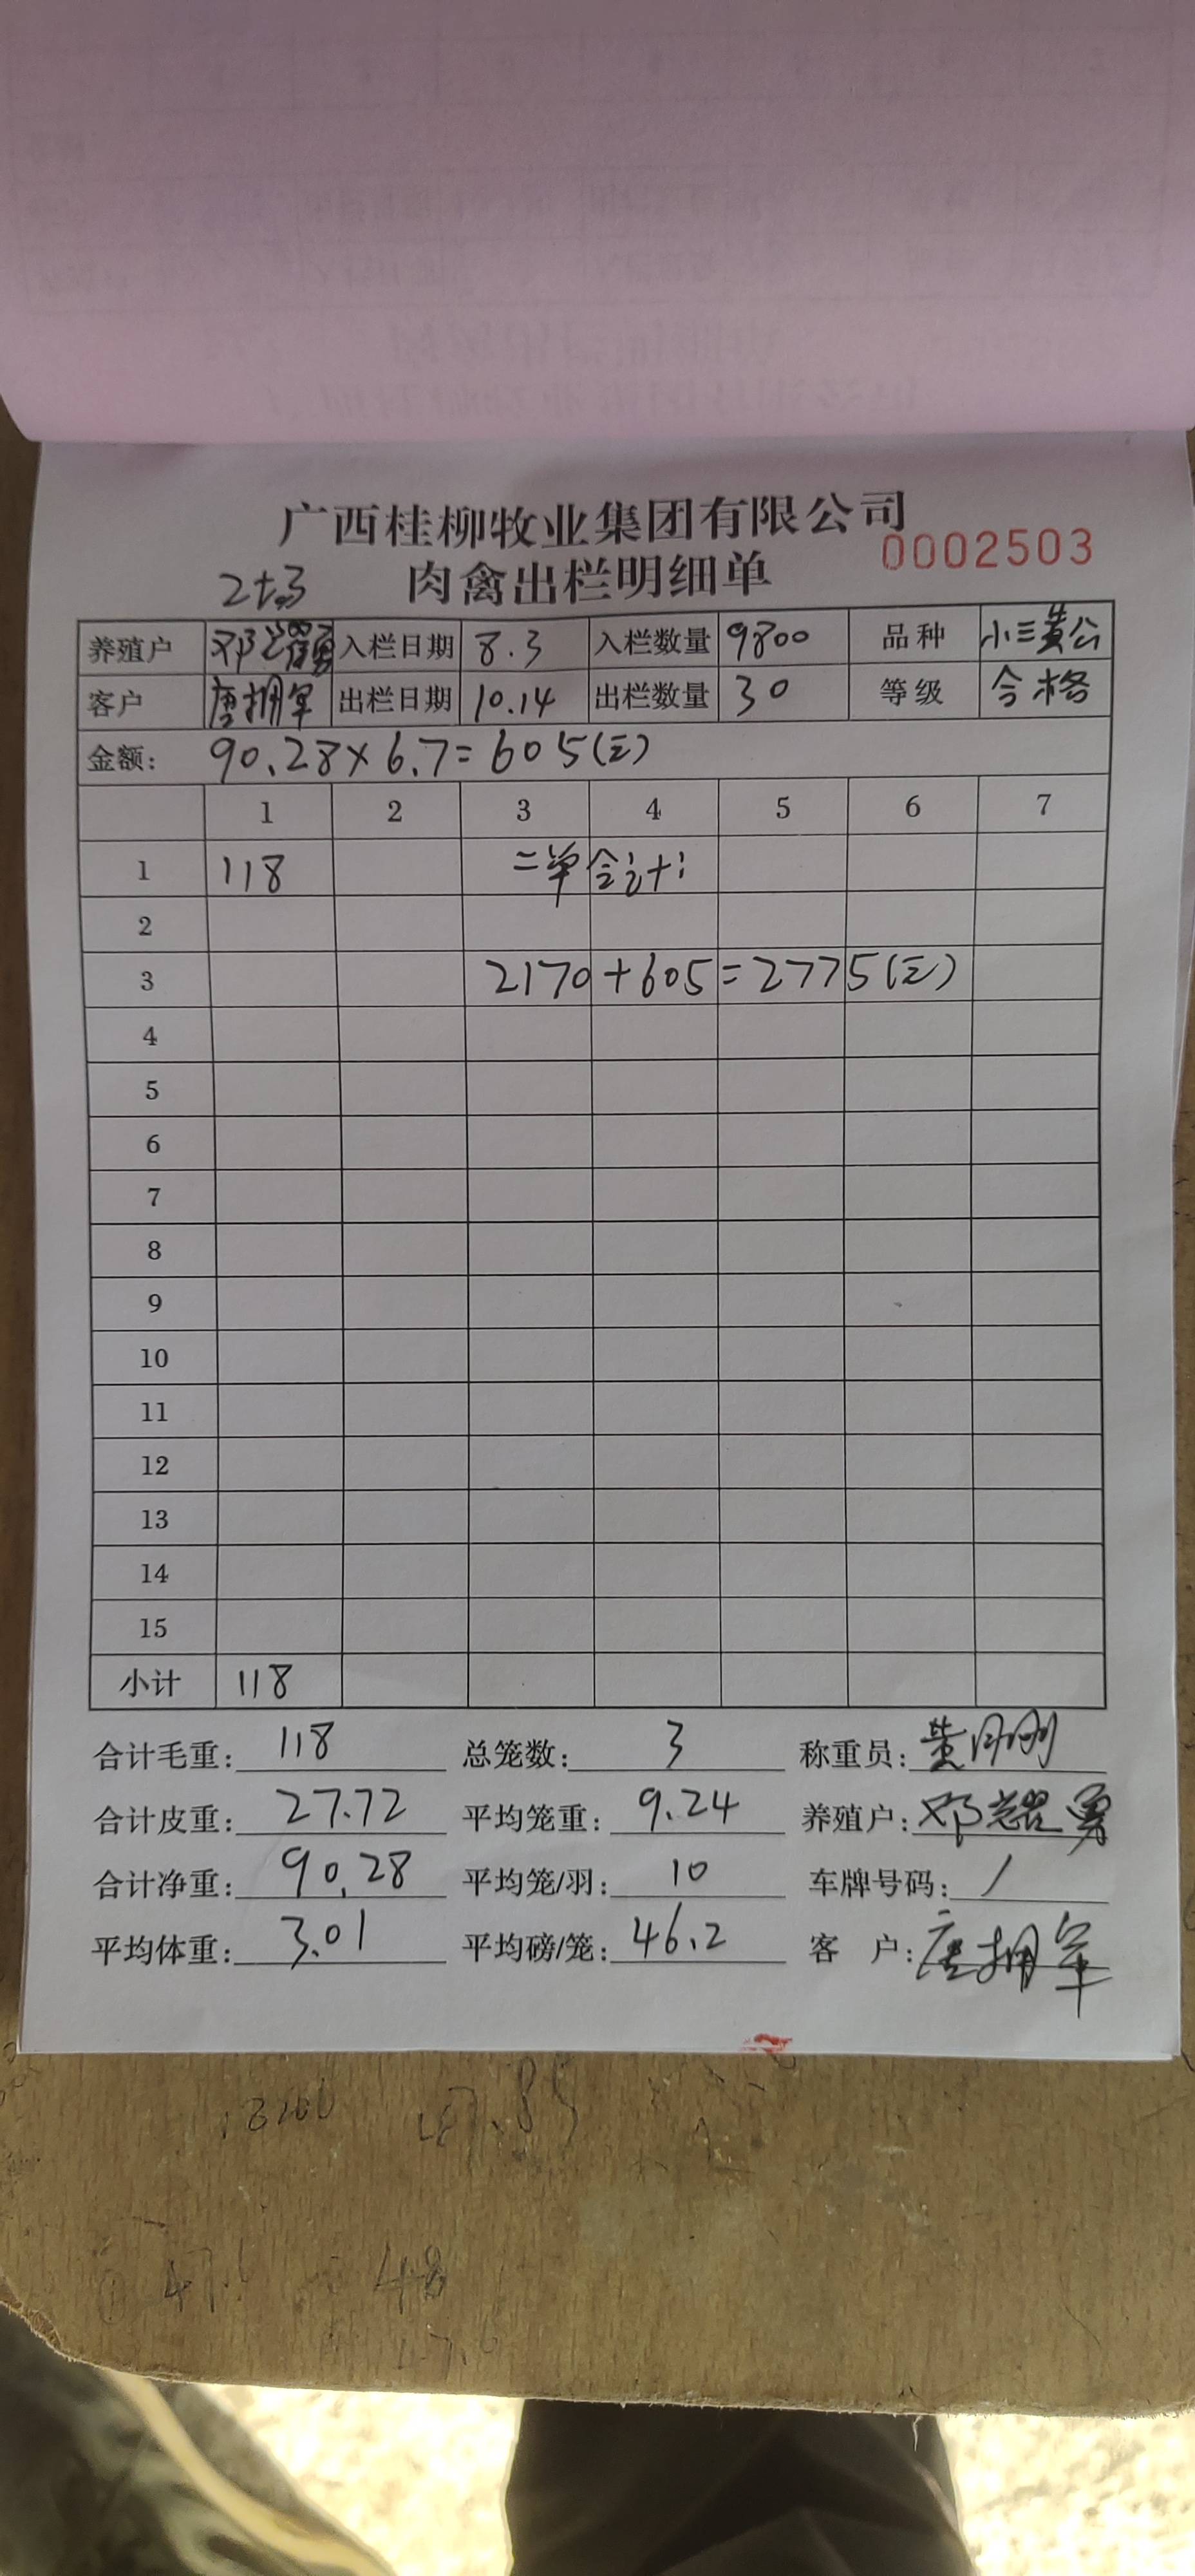 广西桂柳牧业集团有限公司
0002503
肉禽出栏明细单
养殖户 邓耀勇 入栏日期 8.3 入栏数量 9800 品种 小三黄公
客户 唐拥军 出栏日期 10.14 出栏数量 30 等级 合格
金额: 90.28×6.7=605(元)
1 2 3 4 5 6 7
1 118 二单合计:
2
3 2170+605=2775(元)
4
5
6
7
8
9
10
11
12
13
14
15
小计 118
合计毛重: 118 总笼数: 3 称重员: 黄月刚
合计皮重: 27.72 平均笼重: 9.24 养殖户: 邓耀勇
合计净重: 90.28 平均笼/羽: 10 车牌号码: /
平均体重: 3.01 平均磅/笼: 46.2 客 户: 唐拥军
48